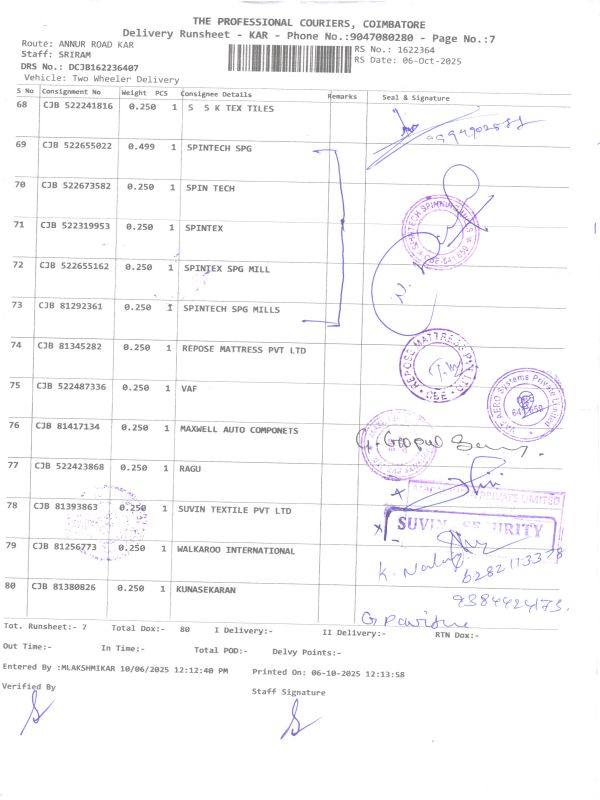 THE PROFESSIONAL COURIERS, COIMBATORE
Delivery Runsheet - KAR - Phone No.:9047080280 - Page No.:7
Route: ANNUR ROAD KAR
RS No.: 1622364
Staff: SRIRAM
RS Date: 06-Oct-2025
DRS No.: DCJB162236407
Vehicle: Two Wheeler Delivery
S No Consignment No Weight PCS Consignee Details Remarks Seal & Signature
68 CJB 522241816 0.250 1 S S K TEX TILES
69 CJB 522655022 0.499 1 SPINTECH SPG
70 CJB 522673582 0.250 1 SPIN TECH
71 CJB 522319953 0.250 1 SPINTEX
72 CJB 522655162 0.250 1 SPINTEX SPG MILL
73 CJB 81292361 0.250 1 SPINTECH SPG MILLS
74 CJB 81345282 0.250 1 REPOSE MATTRESS PVT LTD
REPOSE MATTRESS PVT LTD
CBE
75 CJB 522487336 0.250 1 VAF
Aero Systems Private Limited
76 CJB 81417134 0.250 1 MAXWELL AUTO COMPONETS
77 CJB 522423868 0.250 1 RAGU
PRIVATE LIMITED
78 CJB 81393863 0.250 1 SUVIN TEXTILE PVT LTD
SUVIN SECURITY
79 CJB 81256773 0.250 1 WALKAROO INTERNATIONAL
6282113378
80 CJB 81380826 0.250 1 KUNASEKARAN
9384424173.
Tot. Runsheet:- 7 Total Dox:- 80 I Delivery:- II Delivery:- RTN Dox:-
Out Time:- In Time:- Total POD:- Delvy Points:-
Entered By :MLAKSHMIKAR 10/06/2025 12:12:40 PM Printed On: 06-10-2025 12:13:58
Verified By
Staff Signature